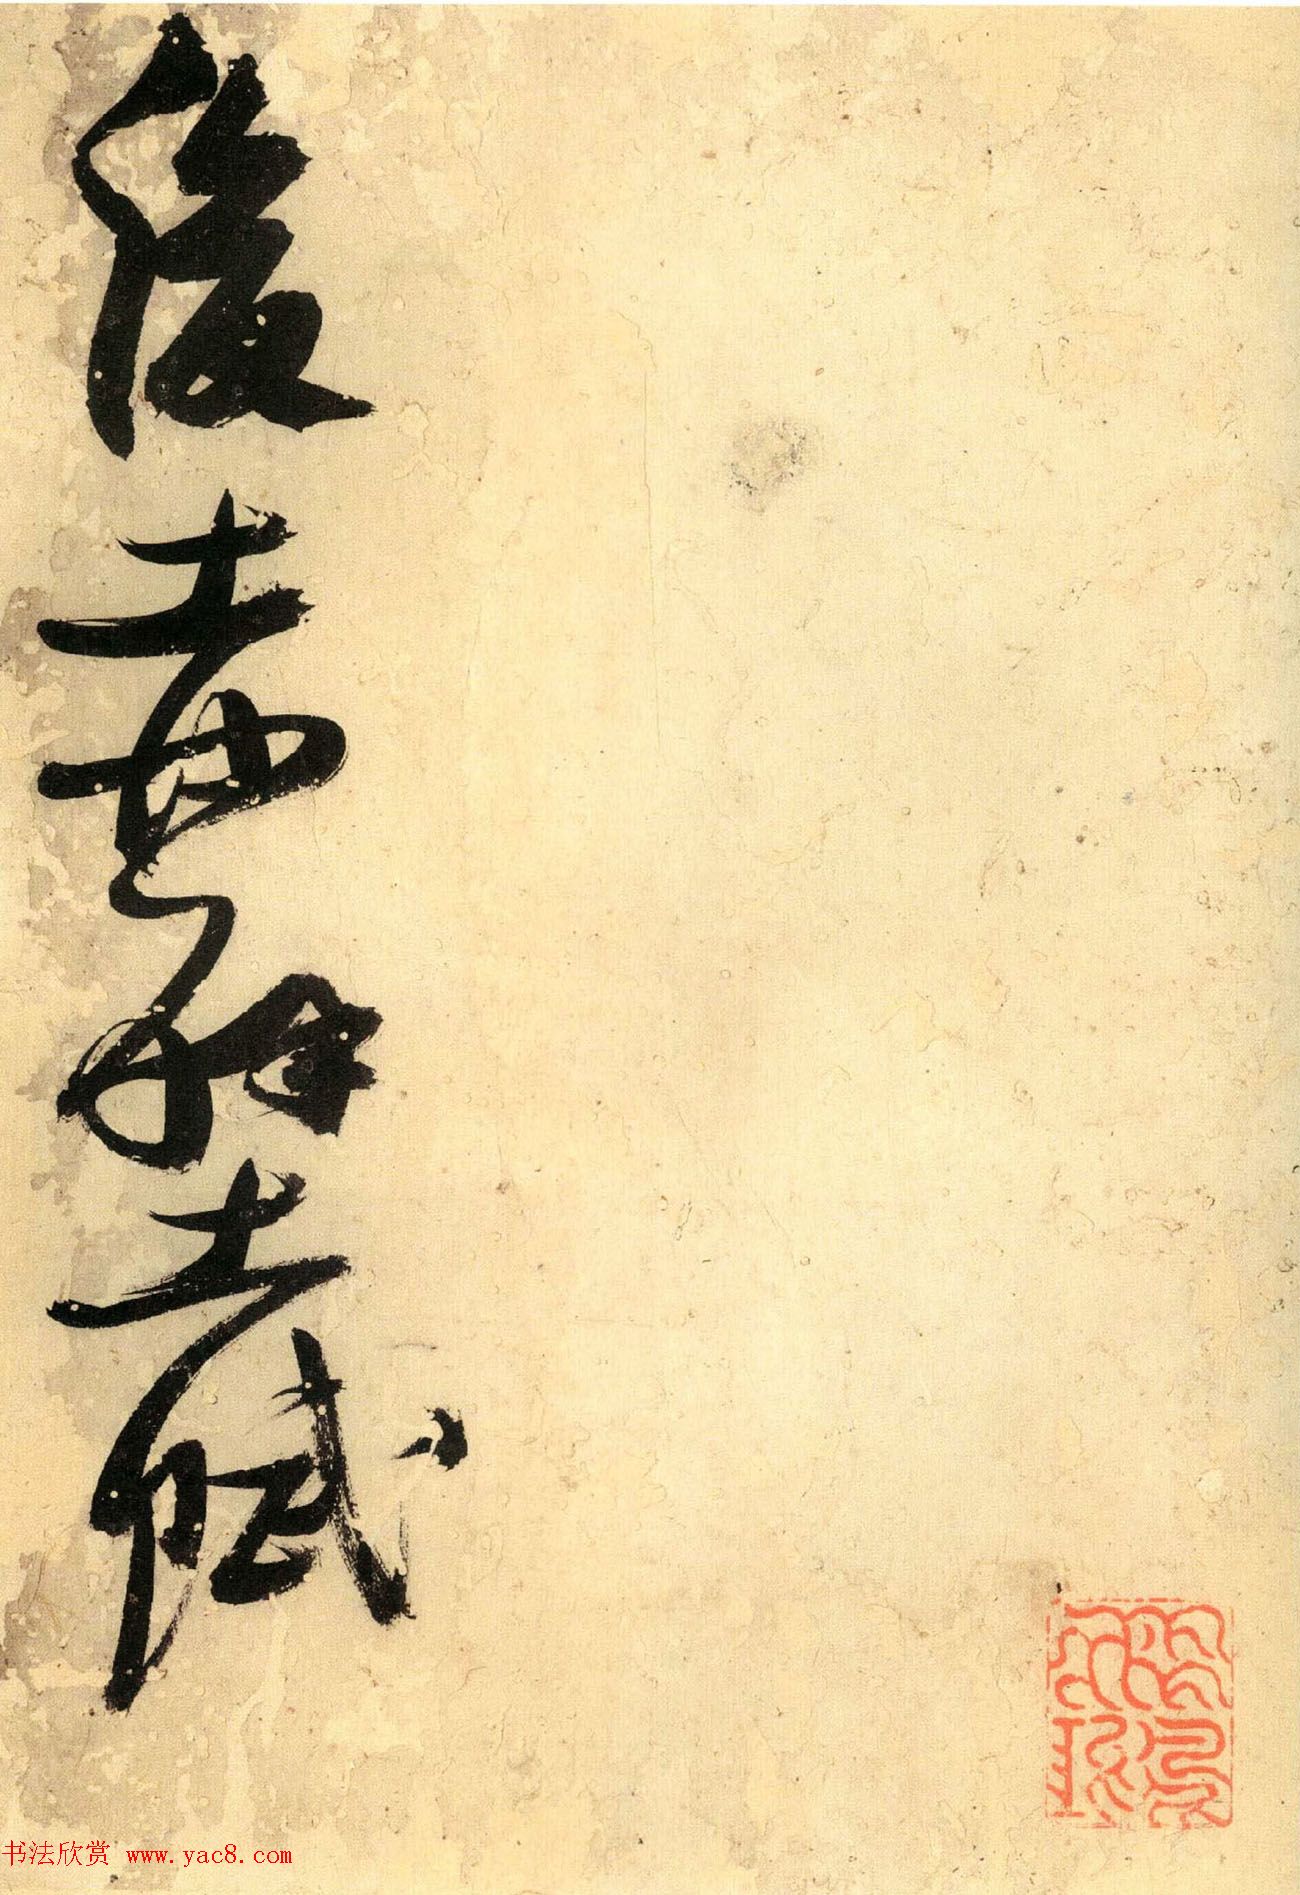 後赤壁賦
书法欣赏 www.yac8.com